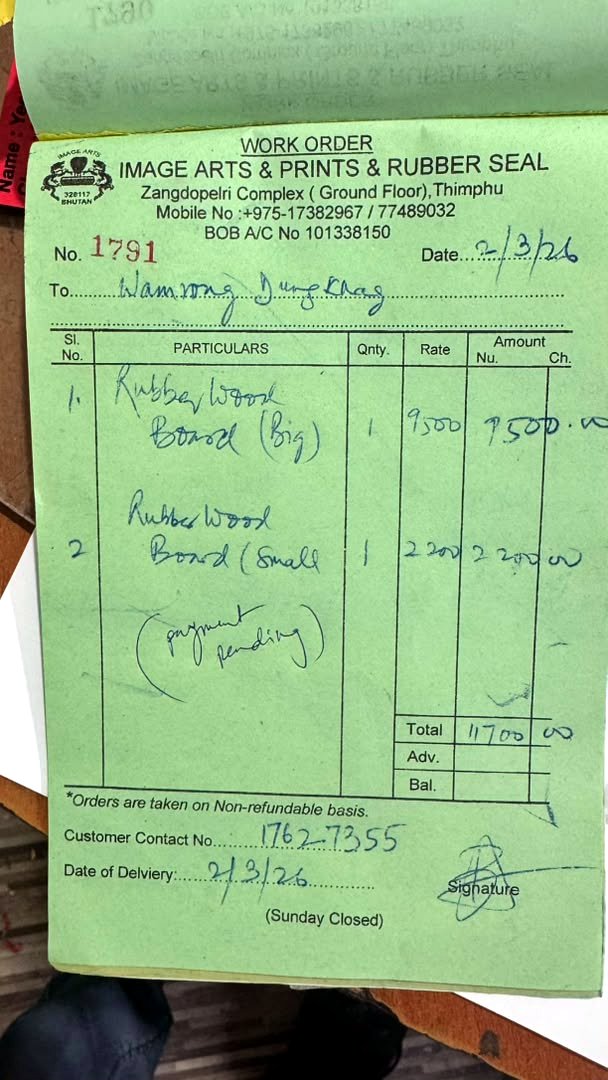 Name : Ye
WORK ORDER
IMAGE ARTS
328117
BHUTAN
IMAGE ARTS & PRINTS & RUBBER SEAL
Zangdopelri Complex ( Ground Floor),Thimphu
Mobile No :+975-17382967 / 77489032
BOB A/C No 101338150
No. 1791 Date... 2/3/26
To..... Wamrong Dungkhag
Sl. No. PARTICULARS Qnty. Rate Amount Nu. Ch.
1. Rubber Wood
Board (Big) 1 9500 9500.00
Rubber Wood
2 Board (Small 1 2200 2200 00
(payment
pending)
Total 11700 00
Adv.
Bal.
*Orders are taken on Non-refundable basis.
Customer Contact No..... 17627355
Date of Delviery:..... 2/3/26
Signature
(Sunday Closed)